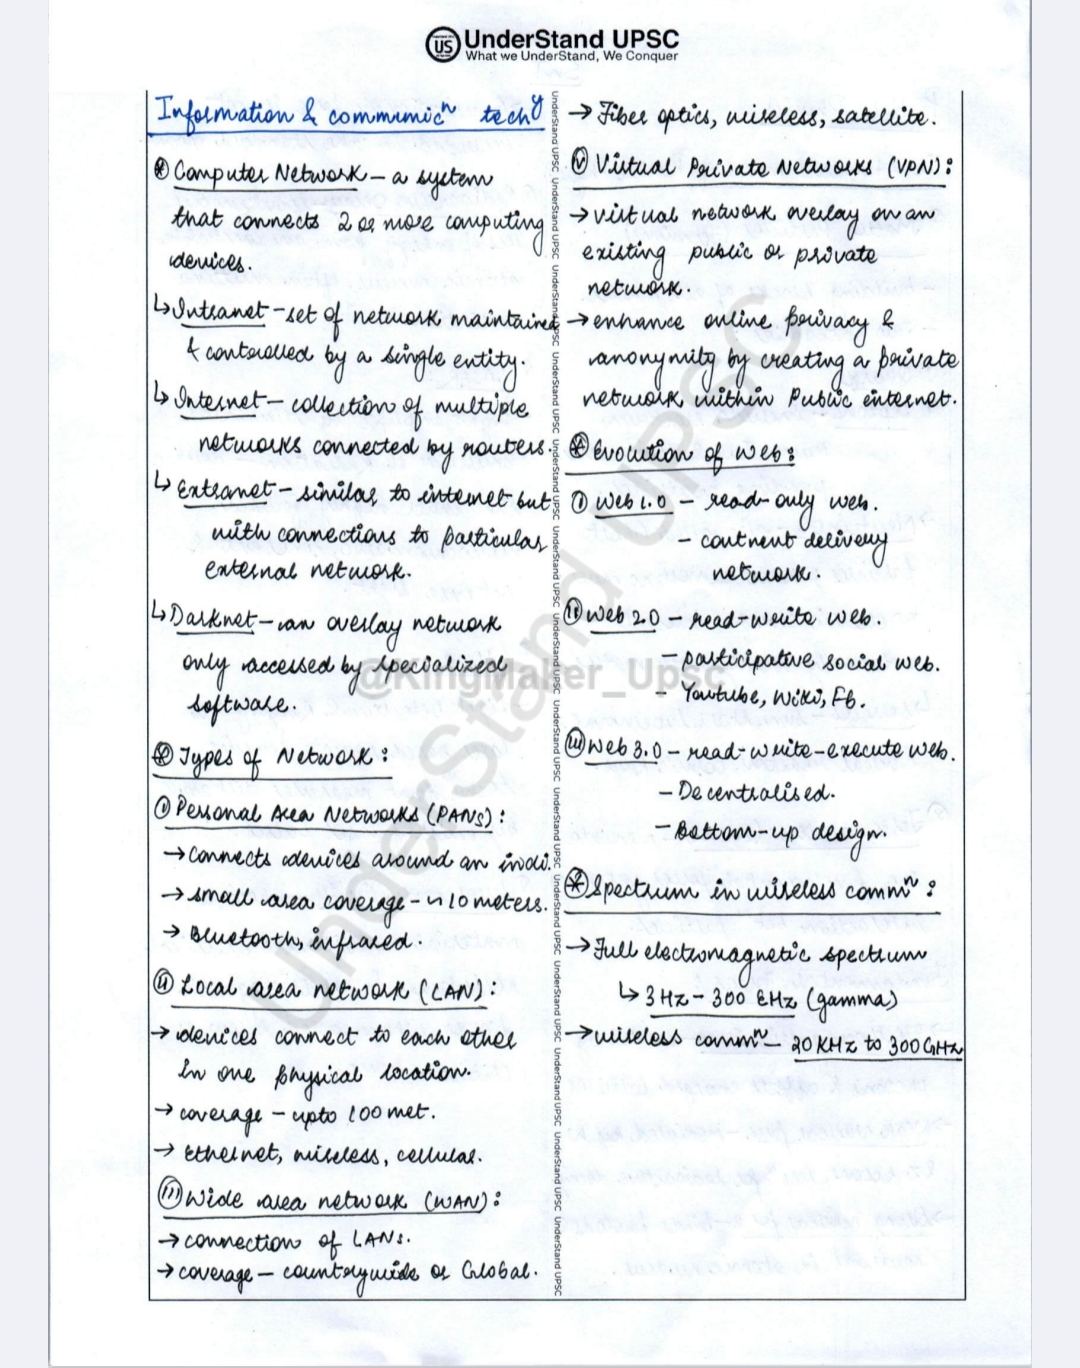 US UnderStand UPSC
What we UnderStand, We Conquer
Information & communicⁿ techʸ
Computer Network – a system
that connects 2 or more computing
devices.
↳ Intranet – set of network maintained
& controlled by a single entity.
↳ Internet – collection of multiple
networks connected by routers.
↳ Extranet – similar to internet but
with connections to particular
external network.
↳ Darknet – an overlay network
only accessed by specialized
software.
Types of Network :
(i) Personal Area Networks (PANs) :
→ Connects devices around an indi.
→ small area coverage – ~ 10 meters.
→ Bluetooth, infrared.
(ii) Local area network (LAN) :
→ devices connect to each other
in one physical location.
→ coverage – upto 100 met.
→ Ethernet, wireless, cellular.
(iii) Wide area network (WAN) :
→ connection of LANs.
→ coverage – countrywide or Global.
→ Fiber optics, wireless, satellite.
(v) Virtual Private Networks (VPN) :
→ virtual network overlay on an
existing public or private
network.
→ enhance online privacy &
anonymity by creating a private
network within Public internet.
Evolution of Web :
(i) Web 1.0 – read-only web.
– contnent delivery
network.
(ii) Web 2.0 – read-write web.
– participative social web.
– Youtube, Wiki, Fb.
(iii) Web 3.0 – read-write-execute web.
– Decentralised.
– Bottom-up design.
Spectrum in wireless commⁿ :
→ Full electromagnetic spectrum
↳ 3 Hz – 300 EHz (gamma)
→ wireless commⁿ – 20 KHz to 300 GHz
UnderStand UPSC
@KingMaker_Upsc